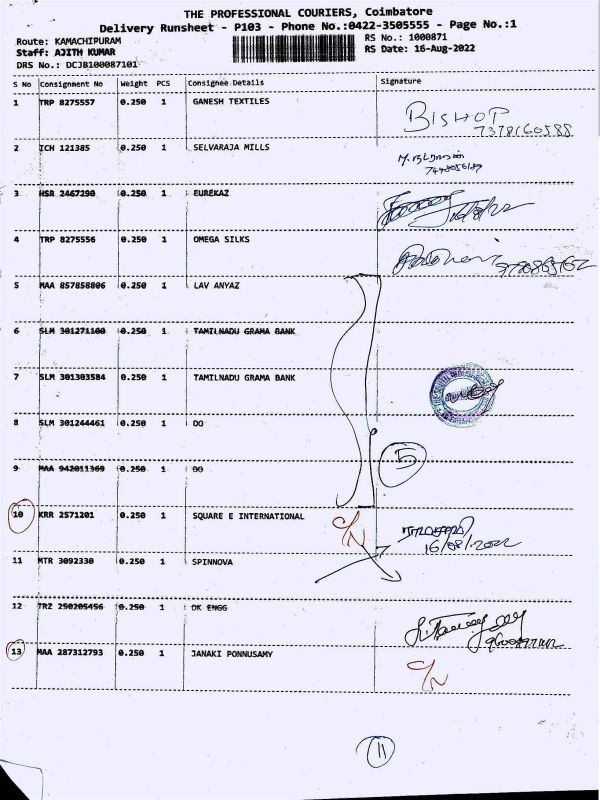 THE PROFESSIONAL COURIERS, Coimbatore
Delivery Runsheet - P103 - Phone No.:0422-3505555 - Page No.:1
Route: KAMACHIPURAM
RS No.: 1000871
Staff: AJITH KUMAR
RS Date: 16-Aug-2022
DRS No.: DCJB100087101
S No Consignment No Weight PCS Consignee Details Signature
1 TRP 8275557 0.250 1 GANESH TEXTILES
BISHOP
7378160588
2 ICH 121385 0.250 1 SELVARAJA MILLS
3 HSR 2467290 0.250 1 EUREKAZ
4 TRP 8275556 0.250 1 OMEGA SILKS
5 MAA 857858806 0.250 1 LAV ANYAZ
6 SLM 301271100 0.250 1 TAMILNADU GRAMA BANK
7 SLM 301303584 0.250 1 TAMILNADU GRAMA BANK
8 SLM 301244461 0.250 1 DO
5
9 MAA 942011369 0.250 1 DO
10 KRR 2571201 0.250 1 SQUARE E INTERNATIONAL
C/N
16/08/2022
11 MTR 3092330 0.250 1 SPINNOVA
12 TRZ 250205456 0.250 1 DK ENGG
13 MAA 287312793 0.250 1 JANAKI PONNUSAMY
C/N
11